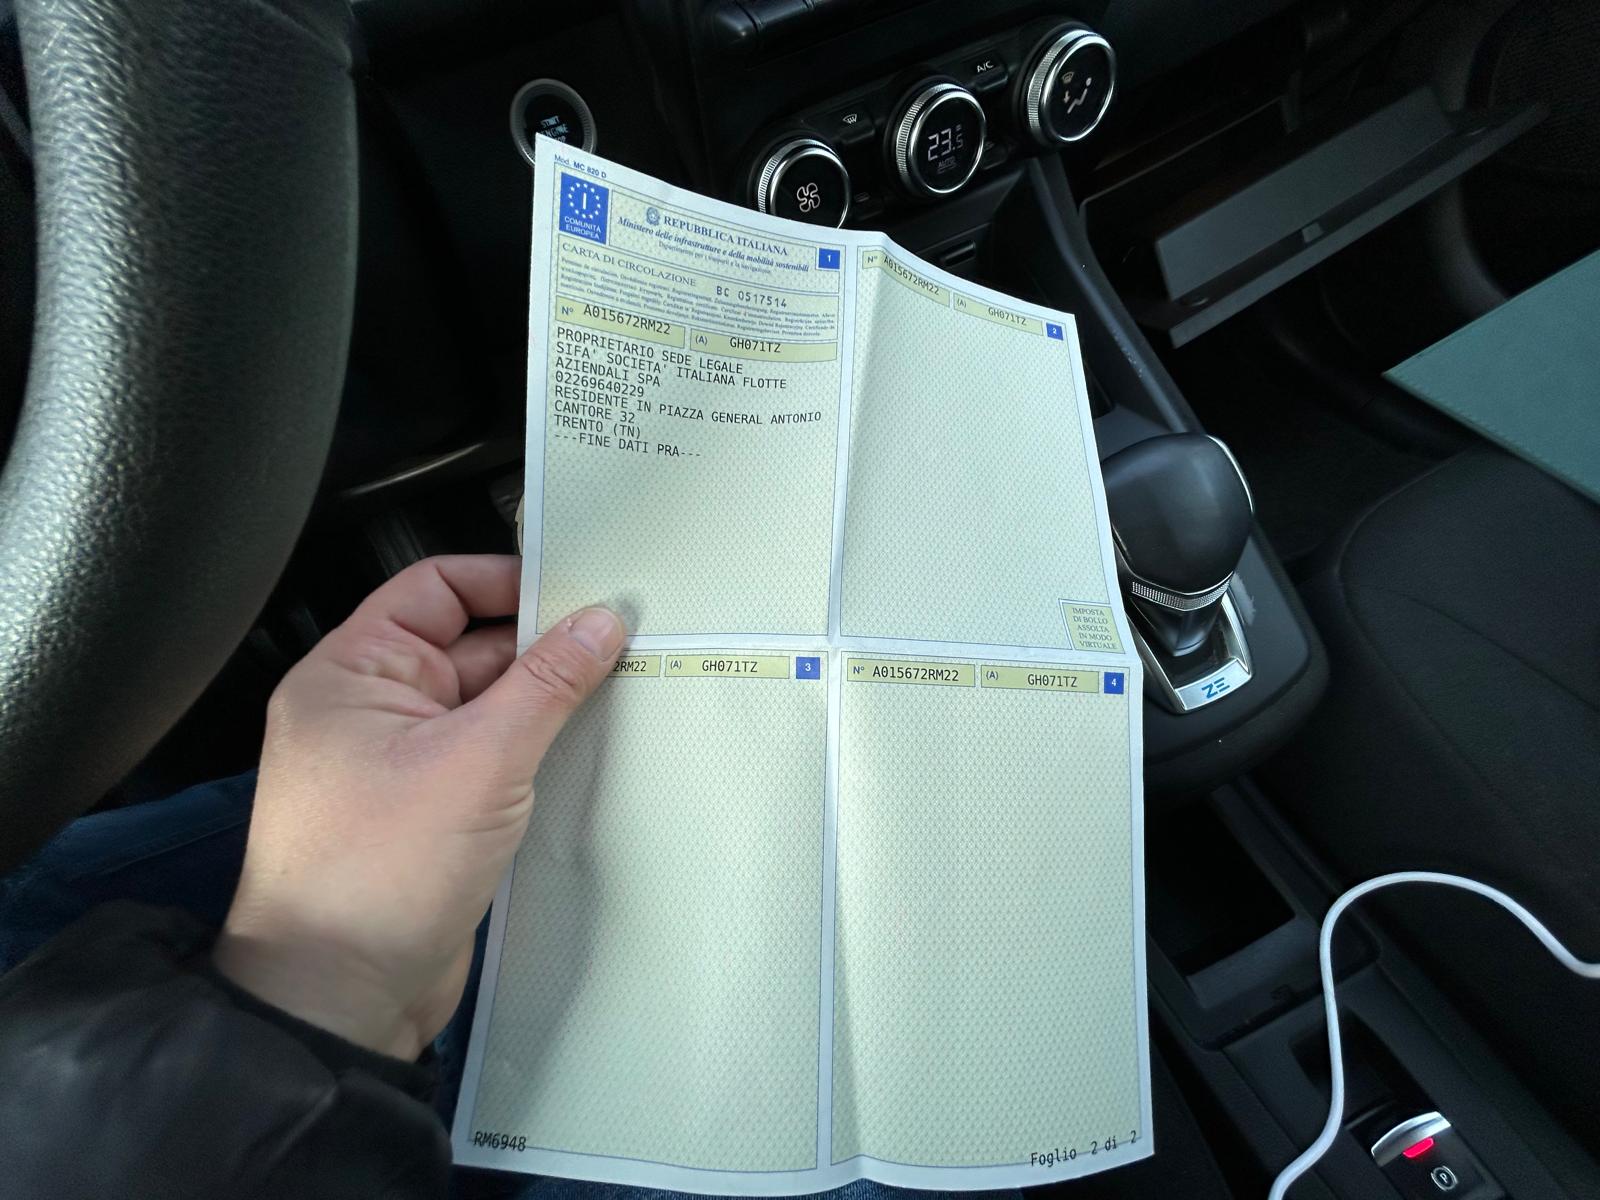 START
ENGINE
A/C
23.5
AUTO
Mod. MC 820 D
I
COMUNITÀ
EUROPEA
REPUBBLICA ITALIANA
Ministero delle infrastrutture e della mobilità sostenibili
Dipartimento per i trasporti e la navigazione
1
CARTA DI CIRCOLAZIONE
BC 0517514
N° A015672RM22
(A) GH071TZ
PROPRIETARIO SEDE LEGALE
SIFA' SOCIETA' ITALIANA FLOTTE
AZIENDALI SPA
02269640229
RESIDENTE IN PIAZZA GENERAL ANTONIO
CANTORE 32
TRENTO (TN)
---FINE DATI PRA---
N° A015672RM22
(A) GH071TZ
2
IMPOSTA
DI BOLLO
ASSOLTA
IN MODO
VIRTUALE
2RM22
(A) GH071TZ
3
N° A015672RM22
(A) GH071TZ
4
RM6948
Foglio 2 di 2
ZE
P